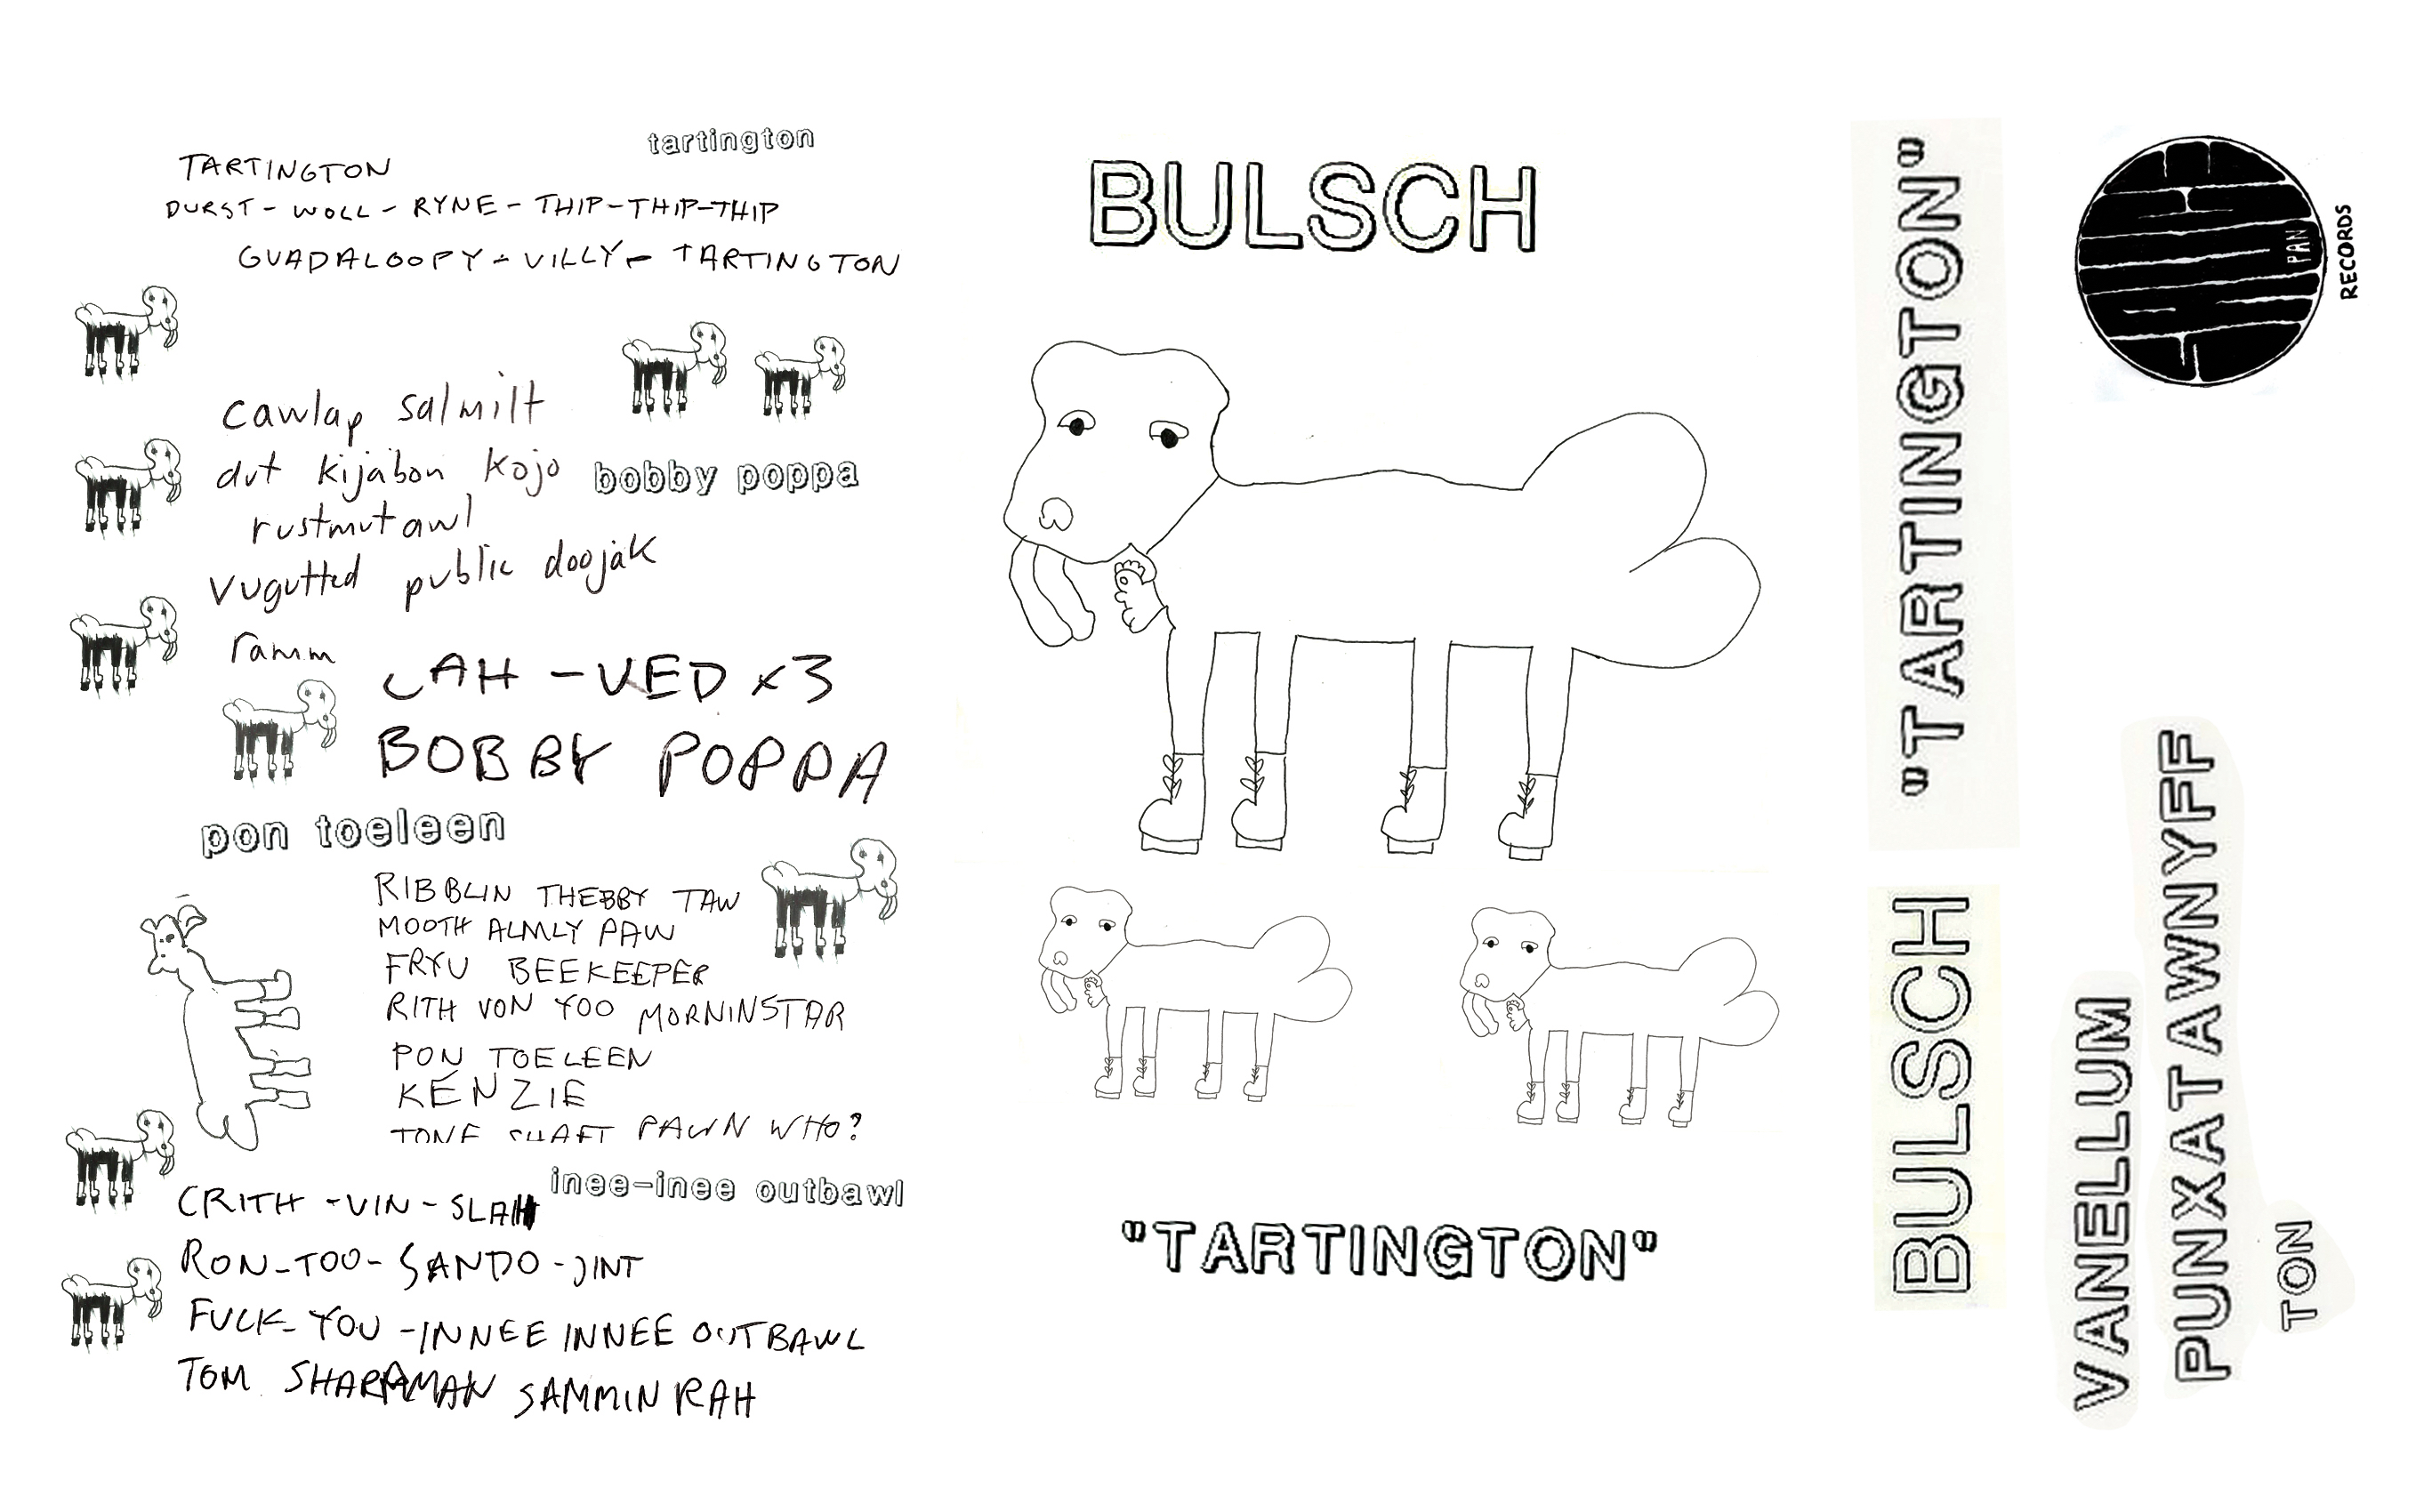 tartington
TARTINGTON
DURST - WOLL - RYNE - THIP-THIP-THIP
GUADALOOPY - VILLY - TARTINGTON
cawlap salmilt
dut kijabon kojo
rustmutawl
vugutted public doojak
ramm
bobby poppa
LAH - VED x3
BOBBY POPPA
pon toeleen
RIBBLIN THEBBY TAW
MOOTH ALMLY PAW
FRYU BEEKEEPER
RITH VON YOO MORNINSTAR
PON TOELEEN
KENZIE
TONE SHAFT PAWN WHO?
inee-inee outbawl
CRITH - VIN - SLAH
RON-TOO- SANDO -JINT
FUCK-YOU -INNEE INNEE OUTBAWL
TOM SHARAMAN SAMMIN RAH
BULSCH
"TARTINGTON"
BULSCH "TARTINGTON"
VANELLUM
PUNXATAWNYFF
TON
PAN
RECORDS